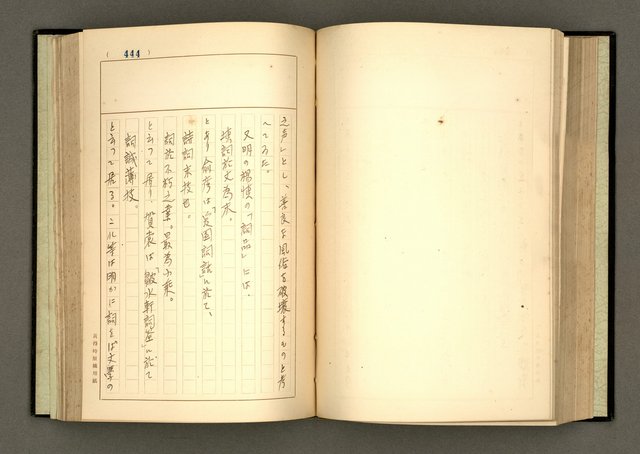 444
之声」とし、善良な風俗を破壊するものと考
へてゐた。
又明の楊慎の「詞品」には、
填詞於文為末。
とあり俞彦は「爰園詞話」に於て、
詩詞末技也。
詞於不朽之業。最為小乘。
と云つて居り、賀裳は「皺水軒詞筌」に於て
詞誠薄技。
と云つて居る。これ等は明かに詞をば文學の
黃得時原稿用紙